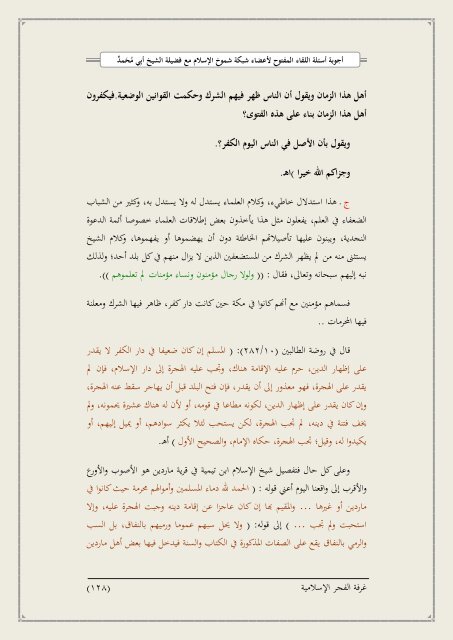 أجوبة أسئلة اللقاء المفتوح لأعضاء شبكة شموخ الإسلام مع فضيلة الشيخ أبي مُحَمدٌ
أهل هذا الزمان ويقول أن الناس ظهر فيهم الشرك وحكمت القوانين الوضعية.فيكفرون
أهل هذا الزمان بناء على هذه الفتوى؟
ويقول بأن الأصل في الناس اليوم الكفر؟.
وجزاكم الله خيرا )اهـ.
ج . هذا استدلال خاطيء، وكلام العلماء يستدل له ولا يستدل به، وكثير من الشباب
الضعفاء في العلم، يفعلون مثل هذا يأخذون بعض إطلاقات العلماء خصوصا أئمة الدعوة
النجدية، ويبنون عليها تأصيلاتهم الخاطئة دون أن يهضموها أو يفهموها، وكلام الشيخ
يستثنى منه من لم يظهر الشرك من المستضعفين الذين لا يزال منهم في كل بلد أحد؛ ولذلك
نبه إليهم سبحانه وتعالى، فقال : (( ولولا رجال مؤمنون ونساء مؤمنات لم تعلموهم )).
فسماهم مؤمنين مع أنهم كانوا في مكة حين كانت دار كفر، ظاهر فيها الشرك ومعلنة
فيها المحرمات ..
قال في روضة الطالبين (٢٨٢/١٠): ( المسلم إن كان ضعيفا في دار الكفر لا يقدر
على إظهار الدين، حرم عليه الإقامة هناك، وتجب عليه الهجرة إلى دار الإسلام، فإن لم
يقدر على الهجرة، فهو معذور إلى أن يقدر، فإن فتح البلد قبل أن يهاجر سقط عنه الهجرة،
وإن كان يقدر على إظهار الدين، لكونه مطاعا في قومه، أو لأن له هناك عشيرة يحمونه، ولم
يخف فتنة في دينه، لم تجب الهجرة، لكن يستحب لئلا يكثر سوادهم، أو يميل إليهم، أو
يكيدوا له، وقيل؛ تجب الهجرة، حكاه الإمام، والصحيح الأول ) أهـ.
وعلى كل حال فتفصيل شيخ الإسلام ابن تيمية في قرية ماردين هو الأصوب والأورع
والأقرب إلى واقعنا اليوم أعني قوله : ( الحمد لله دماء المسلمين وأموالهم محرمة حيث كانوا في
ماردين أو غيرها ... والمقيم بها إن كان عاجزا عن إقامة دينه وجبت الهجرة عليه، وإلا
استحبت ولم تجب ... ) إلى قوله: ( ولا يحل سبهم عموما ورميهم بالنفاق، بل السب
والرمي بالنفاق يقع على الصفات المذكورة في الكتاب والسنة فيدخل فيها بعض أهل ماردين
غرفة الفجر الإسلامية
(١٢٨)